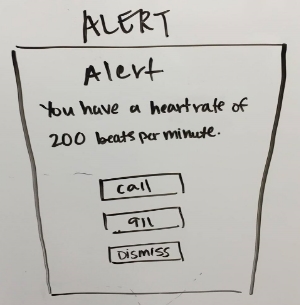 ALERT
Alert
You have a heartrate of
200 beats per minute.
call
911
Dismiss